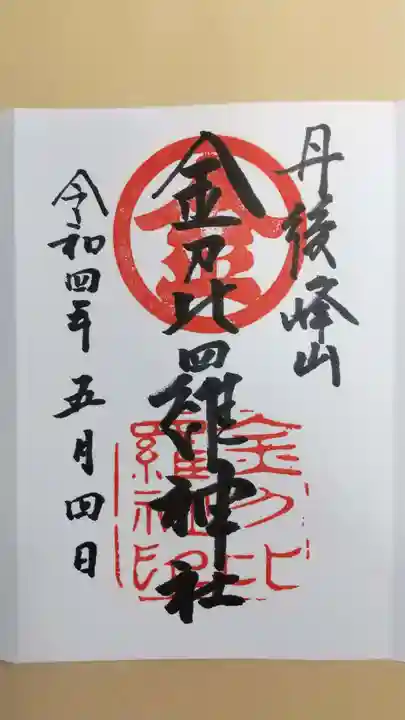 丹後峰山
金刀比羅神社
令和四年五月四日
金
金刀比
羅社印